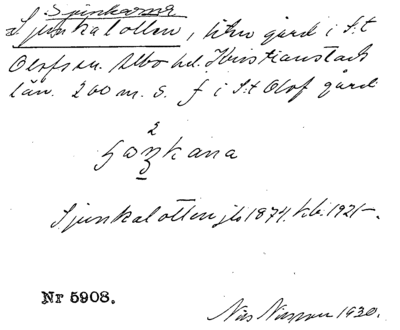 Sjunkarna
Sjunkalotten, liten gård i S:t
Olofs sn. Albo hd. Kristianstads
län. 200 m. S. f i S:t Olof gård
2
Sjunkalotten jb 1874. kb. 1921-.
Nr 5908.
Nils Nilsson 1930.